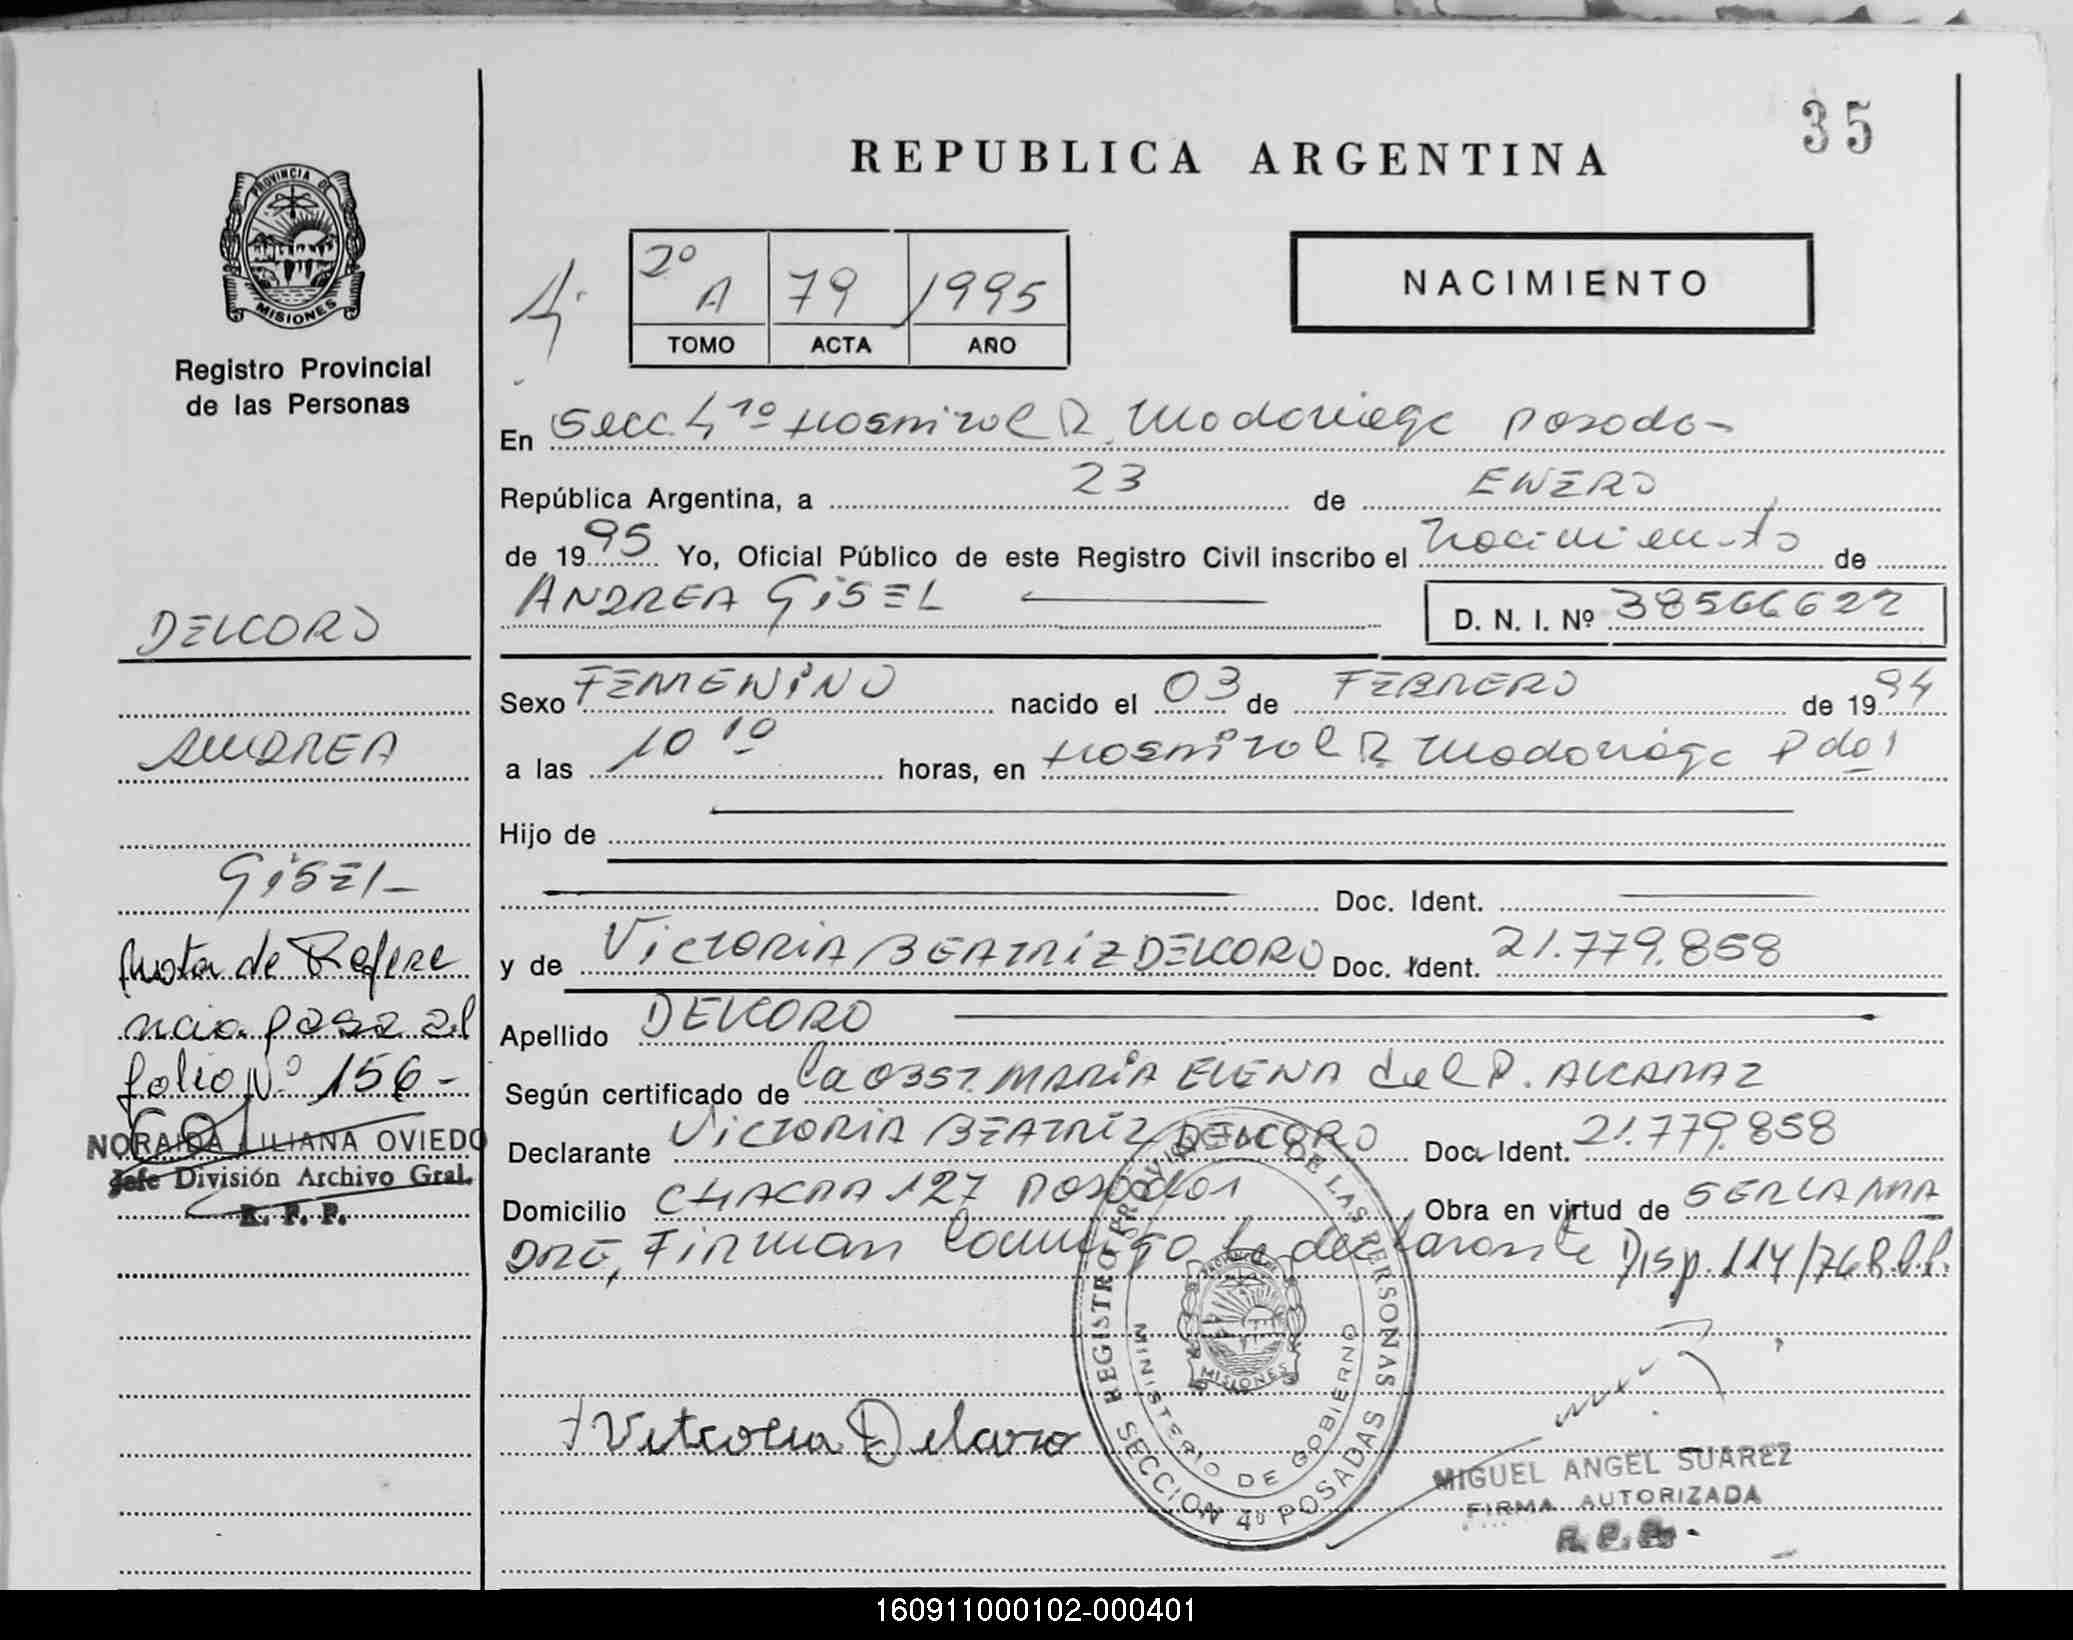 35
REPUBLICA ARGENTINA
PROVINCIA DE
MISIONES
Registro Provincial
de las Personas
2º A 79 1995
TOMO ACTA AÑO
NACIMIENTO
En Secc. 4ta Hospital R. Madariaga Posadas
República Argentina, a 23 de ENERO
de 1995 Yo, Oficial Público de este Registro Civil inscribo el nacimiento de
ANDREA GISEL D. N. I. Nº 38566622
DELCORO
Sexo FEMENINO nacido el 03 de FEBRERO de 1994
ANDREA
a las 10 10 horas, en Hospital R. Madariaga Pdas
Hijo de
GISEL
Doc. Ident.
Nota de Refere
ncia pasa al
folio Nº 156-
y de VICTORIA BEATRIZ DELCORO Doc. Ident. 21.779.858
Apellido DELCORO
Según certificado de la OBST. MARIA ELENA del P. ALCARAZ
NORAIDA LILIANA OVIEDO
Jefe División Archivo Gral.
R. P. P.
Declarante VICTORIA BEATRIZ DELCORO Doc. Ident. 21.779.858
Domicilio CHACRA 127 Posadas Obra en virtud de SER LA MA
DRE, Firman conmigo la declarante Disp. 114/76 R.P.P.
REGISTRO PROVINCIAL DE LAS PERSONAS
MINISTERIO DE GOBIERNO
MISIONES
SECCION 4º POSADAS
Vitcoria Delcoro
MIGUEL ANGEL SUAREZ
FIRMA AUTORIZADA
R. P. P.
160911000102-000401